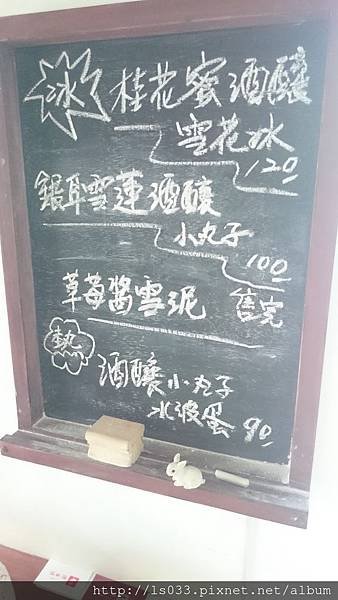 冰 桂花蜜酒釀
雪花冰
120
銀耳雪蓮酒釀
小丸子
100
草莓醬雪泥 售完
熱
酒釀小丸子
水波蛋 90
http://ls033.pixnet.net/album